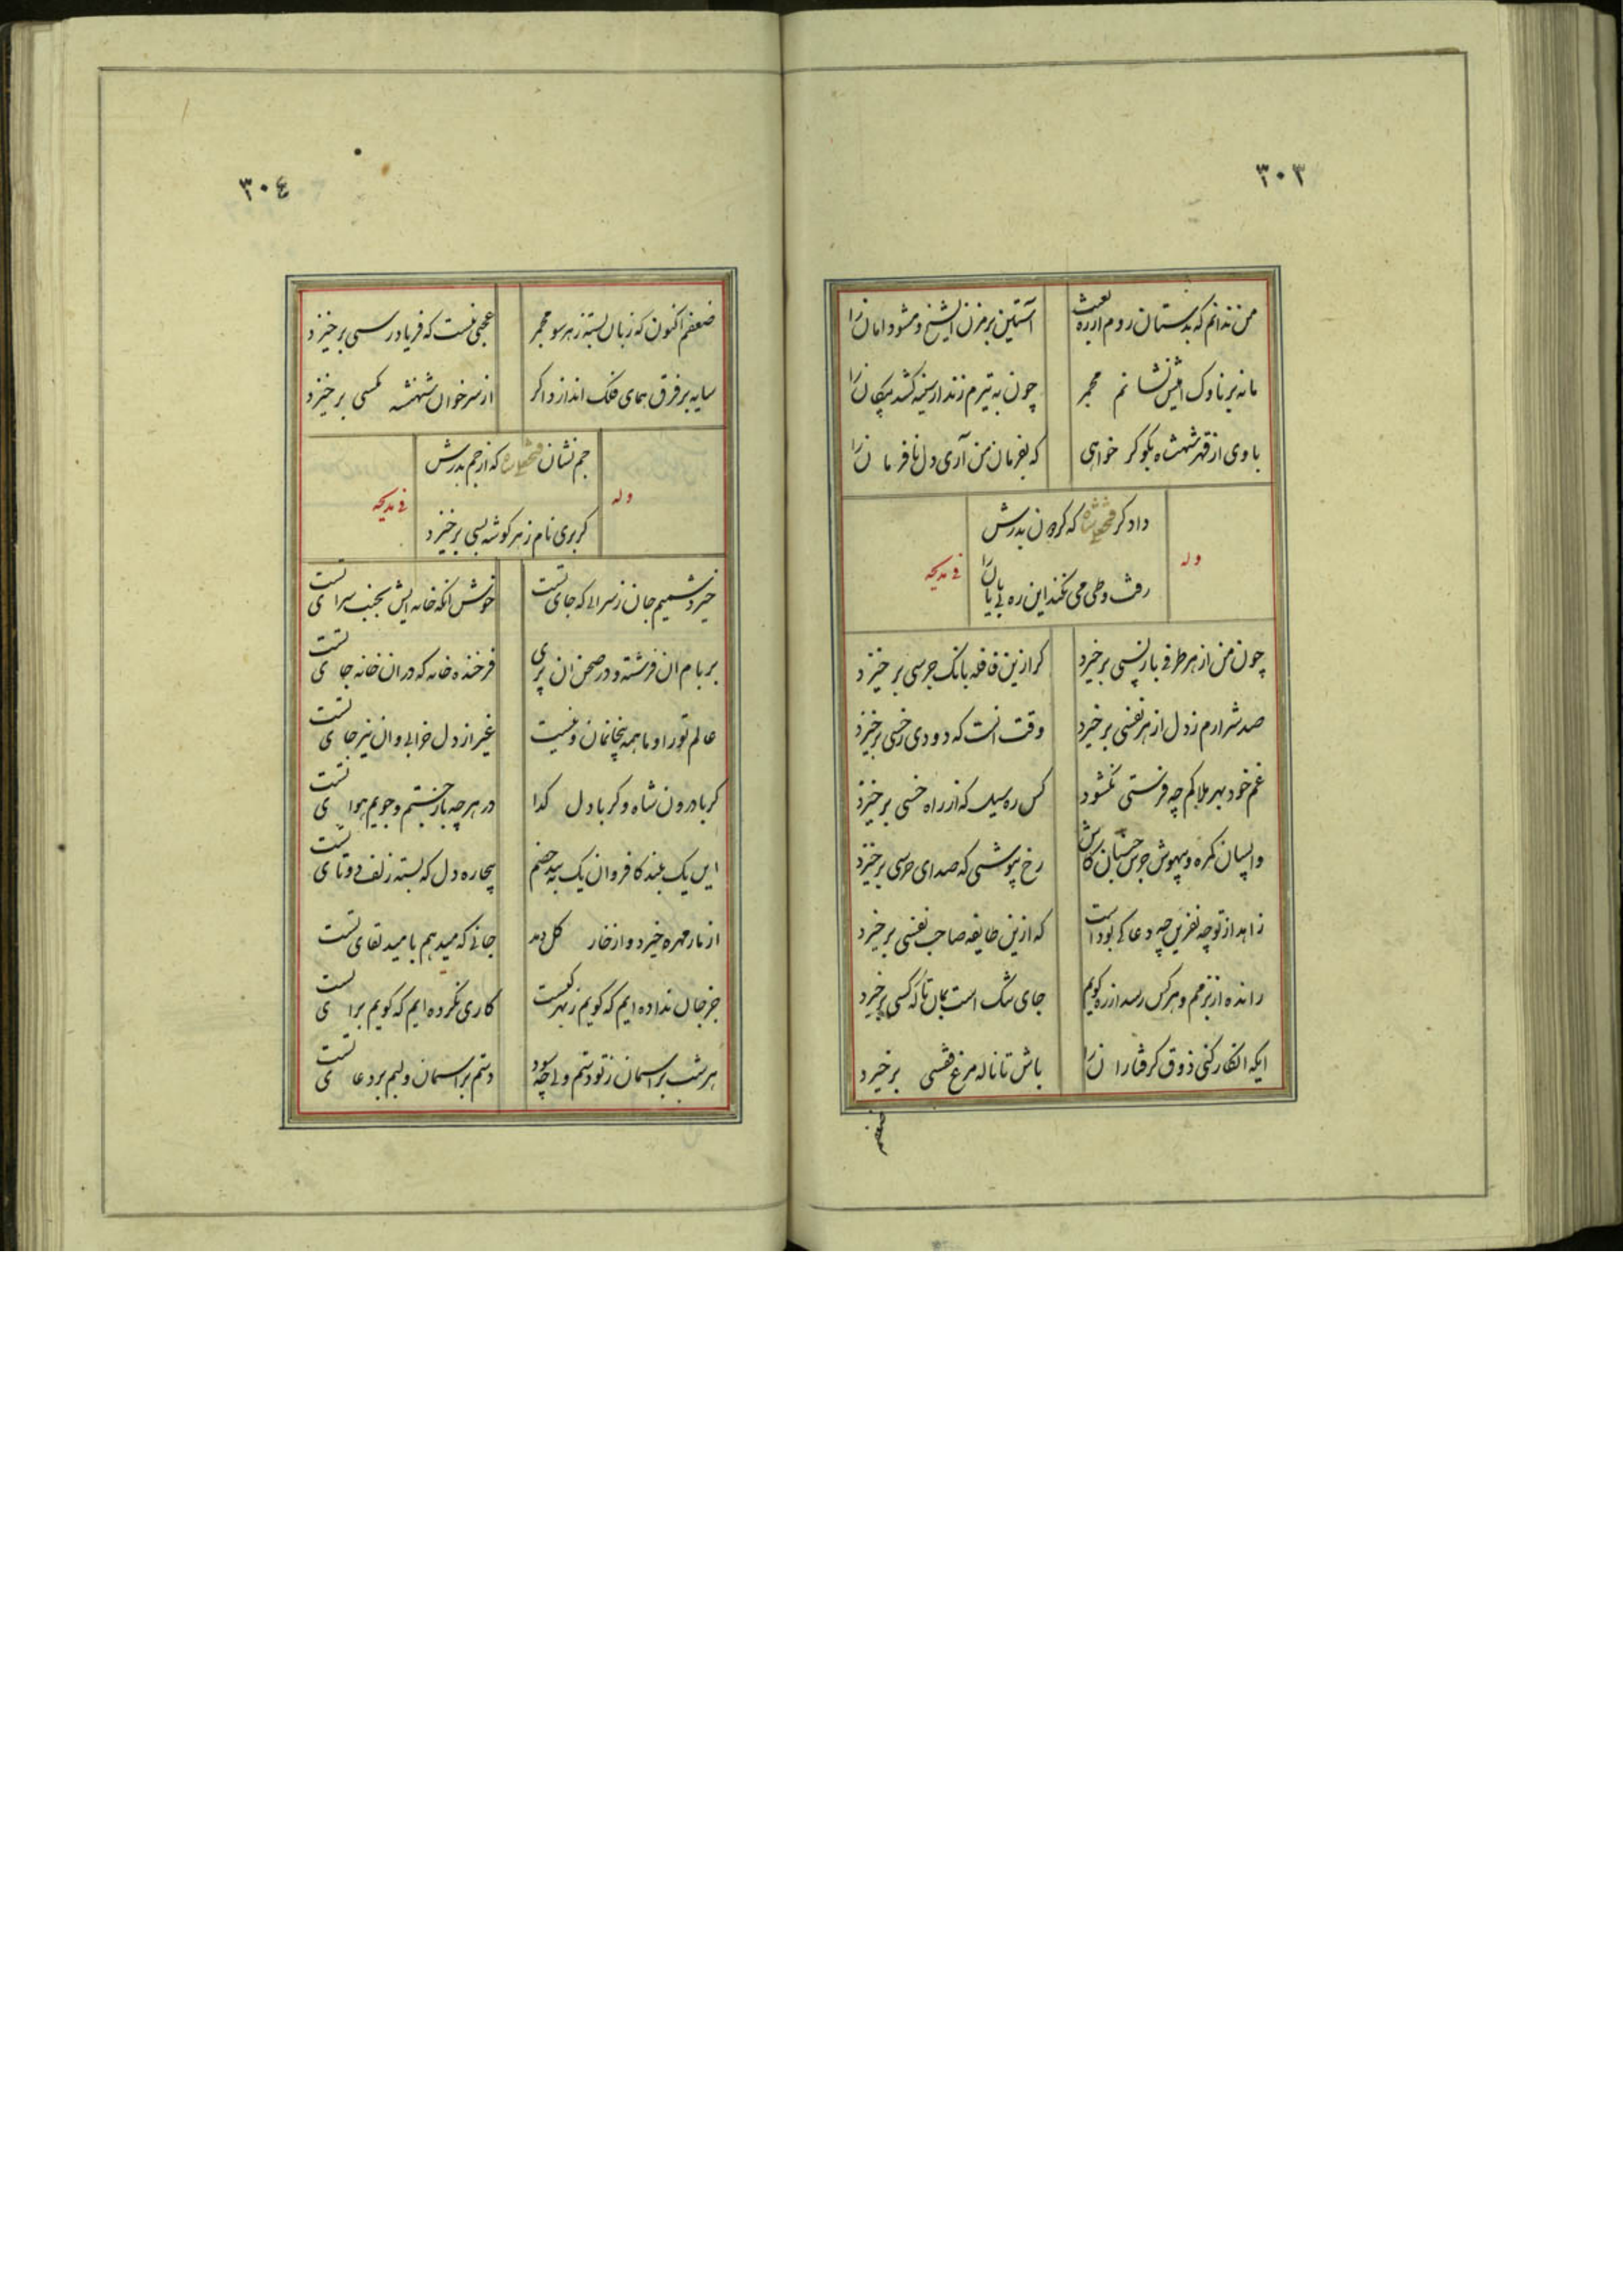 ۳۰۳
من ندانم که بدستان روم از ره بعبث آستین بر مزن ایشیخ و مشو دامان را
ما نه بر ناوک افشانم مجمر چون به تیرم زند از سینه کشد پیکان را
با وی از قهر شهنشاه بگو گر خواهی که بفرمان من آری دل نافرمان را
داد گر فتحعلیشاه که گردن بدرش
وله
فی مدیحه
رفت و طی می نکند این ره بی پایان را
چون من از هر طرفی بار پسی برخیزد گر ازین قافله بانک جرسی برخیزد
صد شرارم ز دل از هر نفسی برخیزد وقت آنست که دودی ز خسی برخیزد
غم خود بهر بلا کم چه فرستی نکشود کس ره سیل که از راه خسی برخیزد
واپسان گمره و بیهوش جرس جنبان کاش رخ بپوشی که صدای جرسی برخیزد
زاهد از تو چه نفرین چه دعا کی بوداست که ازین طایفه صاحب نفسی برخیزد
رانده از بزمم و هر کس رسد از ره گویم جای تنگ است بمان تا که کسی برخیزد
ایکه انکار کنی ذوق گرفتاران را باش تا ناله مرغ قفسی برخیزد
ضعفم
۳۰٤
ضعفم اکنون که زبان بسته ز هر سو مجمر عجبی نیست که فریادرسی برخیزد
سایه بر فرق همای فلک اندازد اگر از سر خوان شهنشه مگسی برخیزد
جم نشان فتحعلیشاه که از جم بدرش
وله
فی مدیحه
گر بری نام ز هر گوشه بسی برخیزد
خیزد شمیم جان ز سرایی که جای تست خوش آنکه خانه ایش بجنب سرای تست
بر بام آن فرشته و در صحن آن پری فرخنده خانه که در آن خانه جای تست
عالم تو را و ما همه بیخانمان و نیست غیر از دل خرابی و آن نیز جای تست
گر با درون شاه و گر با دل گدا در هر چه باز جستم و جویم هوای تست
این یک بلند کافر و آن یک صنم بیچاره دل که بسته زلف دوتای تست
از نار مهره خیزد و از خار گل دمد جانی که میدهم بامید لقای تست
جز جان نداده ایم که گویم ز بهر کیست کاری نکرده ایم که گویم برای تست
هر شب بر آسمان ز تو دستم ولی چه سود دستم بر آسمان و لبم بر دعای تست